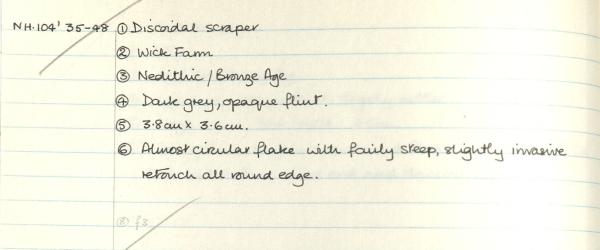 NH.104' 35-48 ① Discoidal scraper
② Wick Farm
③ Neolithic / Bronze Age
④ Dark grey, opaque flint.
⑤ 3.8cm x 3.6cm.
⑥ Almost circular flake with fairly steep, slightly invasive
retouch all round edge.
⑧ f3